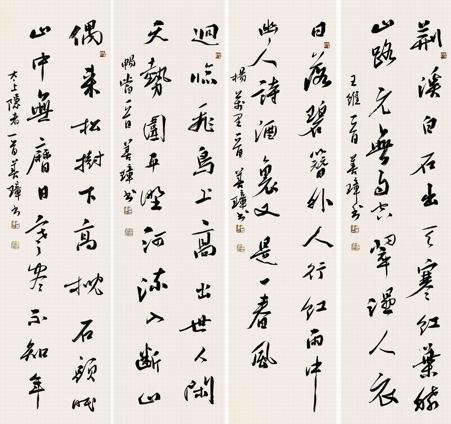 荆溪白石出天寒紅葉稀
山路元無雨空翠濕人衣
王維一首 美璋书
日落碧簪外人行紅雨中
幽人詩酒裏又是一春風
楊萬里一首 美璋书
迥臨飛鳥上高出世人間
天勢圍平野河流入斷山
暢當一首 美璋书
偶来松樹下高枕石頭眠
山中無曆日寒盡不知年
太上隱者一首 美璋书